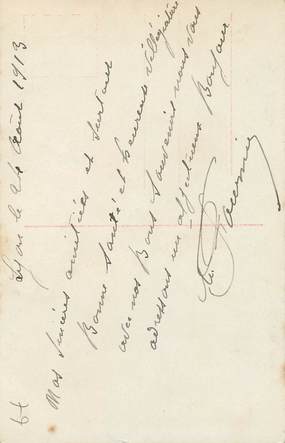 Lyon le 24 Août 1913
Mes sincères amitiés et surtout
Bonne Santé et heureuse villégiature
avec nos Bons Souvenirs nous vous
adressons un affectueux Bonjour